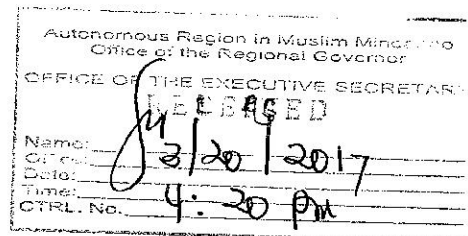 Autonomous Region in Muslim Mindanao
Office of the Regional Governor
OFFICE OF THE EXECUTIVE SECRETARY
RELEASED
Name:
Office:
Date: 3/20/2017
Time: 4:20 pm
CTRL. No.